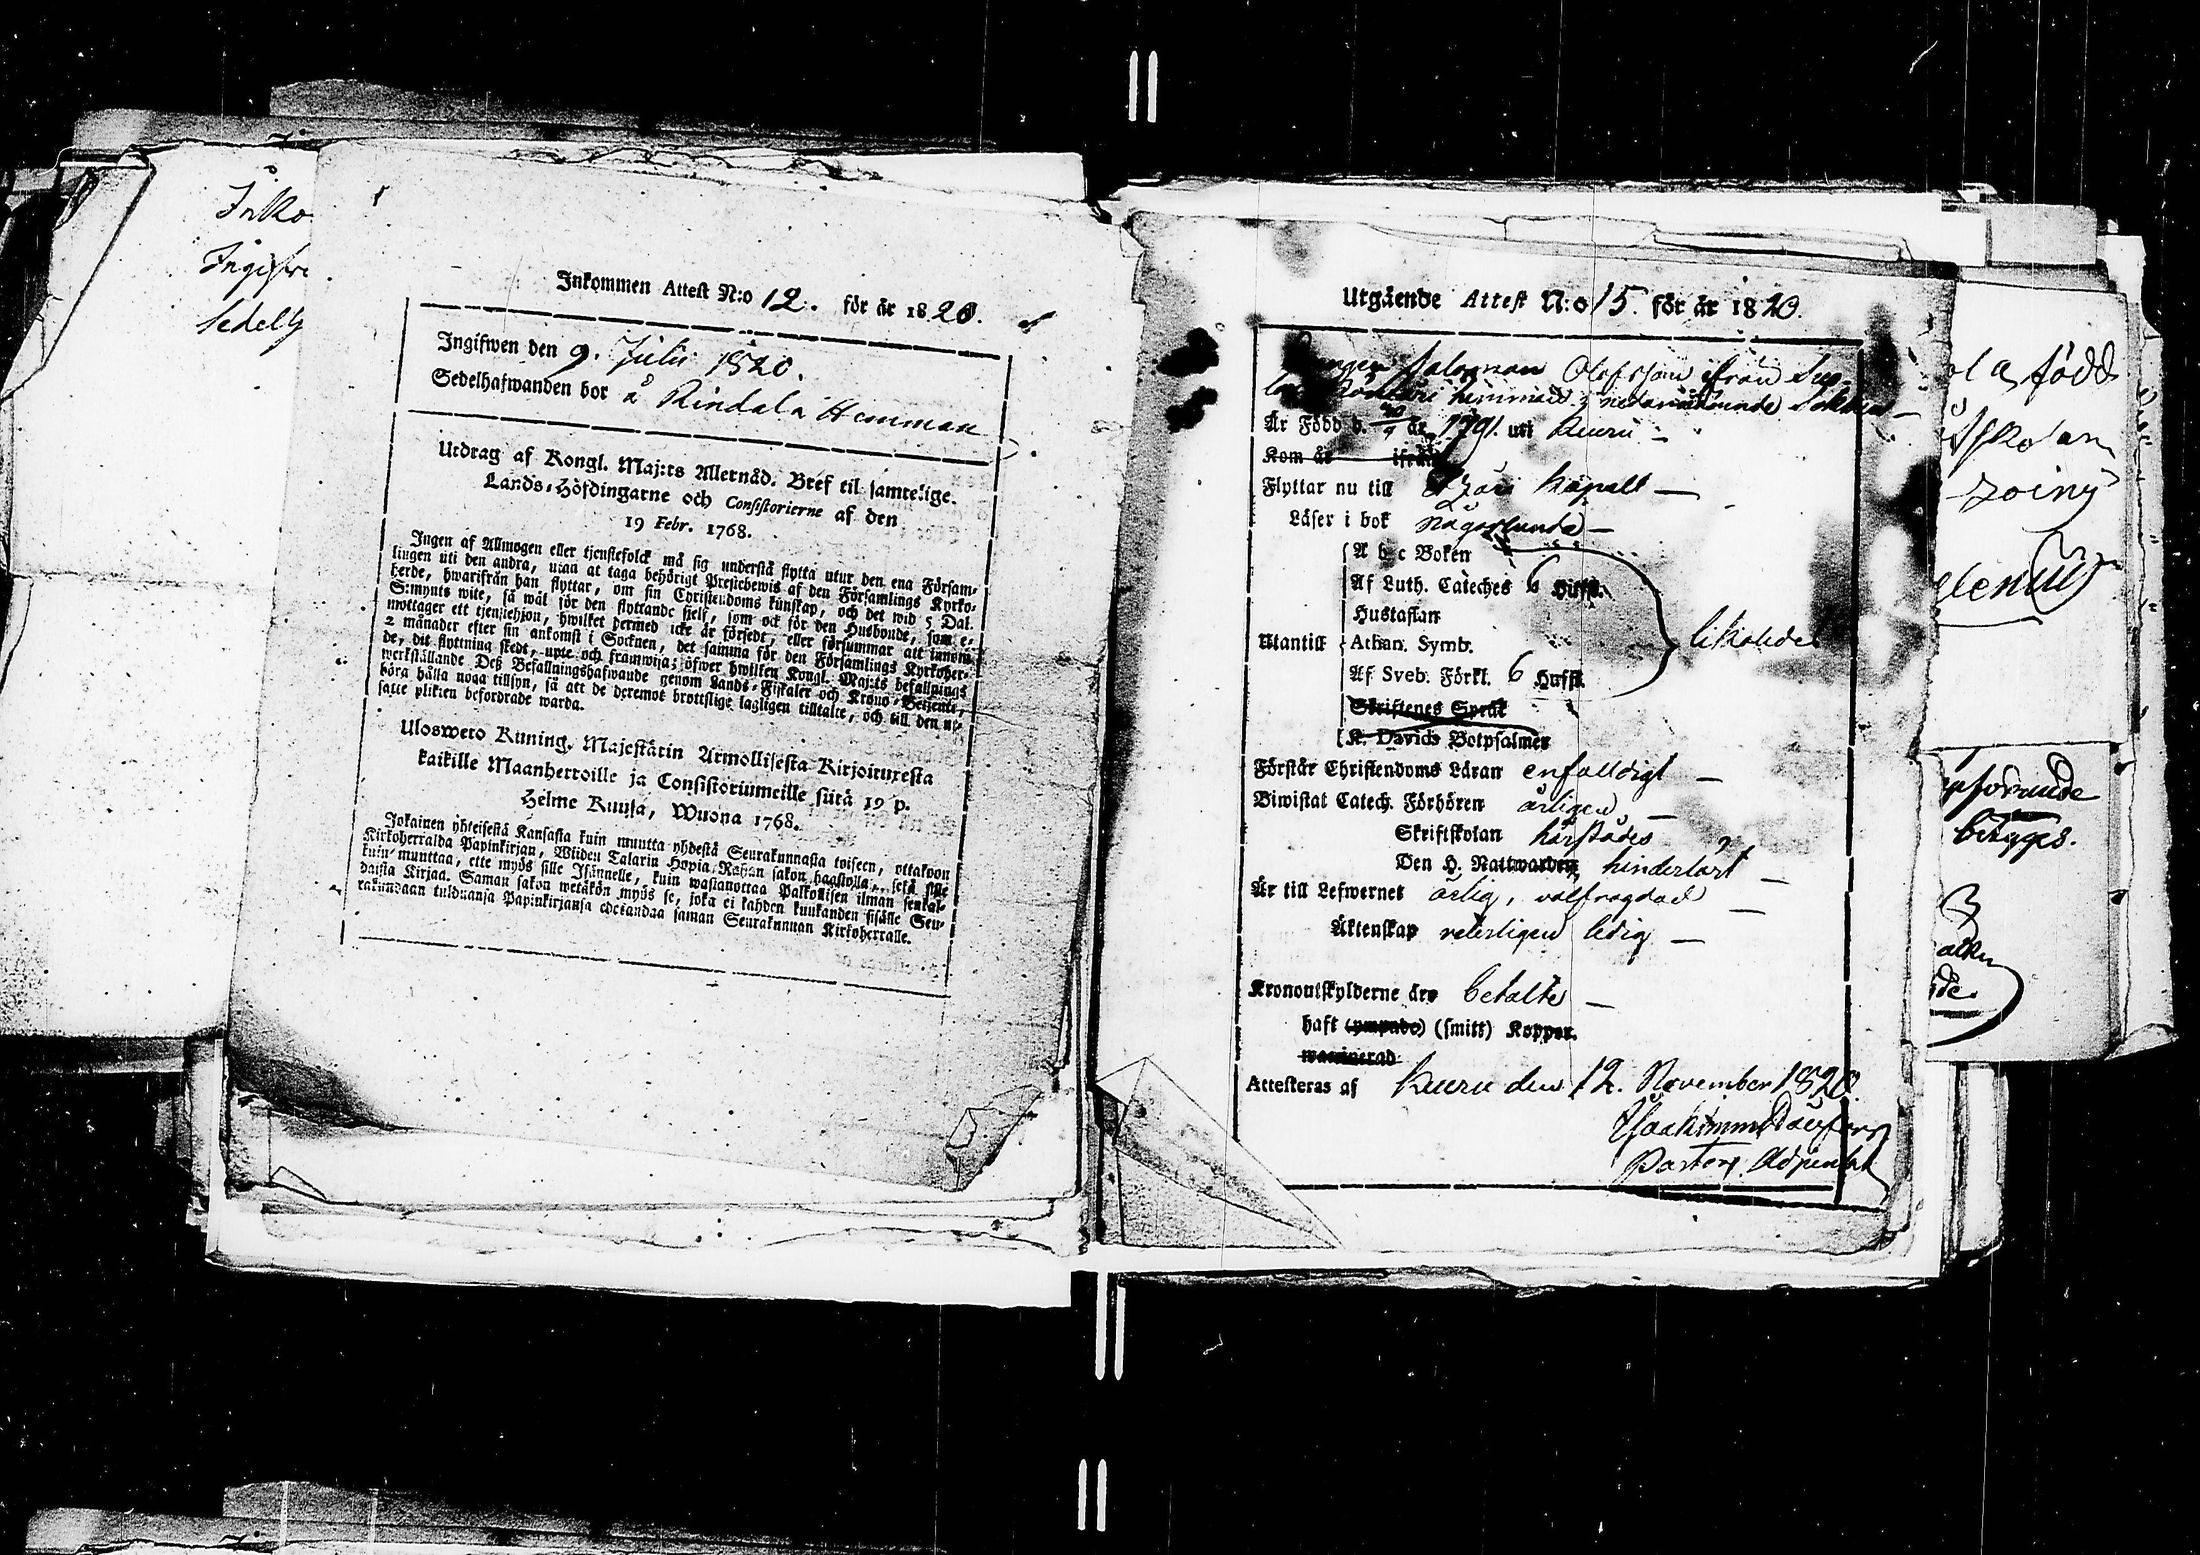 Inko
Ingifwe
Sedelh
Inkommen Attest N:o 12. för år 1820.
Ingifwen den 9. Julii 1820.
Sedelhafwanden bor å Rindala Hemman
Utdrag af Kongl. Maj:ts Allernåd. Bref til samtelige
Lands-Höfdingarne och Consistorierne af den
19 Febr. 1768.
Ingen af Allmogen eller tjenstefolck må sig understå flytta utur den ena Försam-
lingen uti den andra, utan at taga behörigt Prestebewis af den Församlings Kyrko-
herde, hwarifrån han flyttar, om sin Christendoms kunskap, och det wid 5 Dal.
S:mynts wite, så wäl för den flyttande sjelf, som ock för den Husbonde, som e-
mottager ett tjenstehjon, hwilket dermed icke är försedt, eller försummar att innom
2 månader efter sin ankomst i Socknen, det samma för den Församlings Kyrkoher-
de, dit flyttning skedt, upte och framwisa; öfwer hwilken Kongl. Maj:ts befallnings
werkställande Deß Befallningshafwande genom Lands-Fiskaler och Krono-Betjente,
böra hålla noga tillsyn, så att de deremot brottslige lagligen tilltalte, och till den ut-
satte plikten befordrade warda.
Uloswето Kuning. Majestätin Armollisesta Kirjoituxesta
kaikille Maanherroille ja Consistoriumeille siitä 19 p.
Helme Kuusa, Wuona 1768.
Jokainen yhteisestä Kansasta kuin muutta yhdestä Seurakunnasta toiseen, ottakoon
Kirkoherralda Papinkirjan, Wiiden Talarin Hopia Rahan sakon haastolla, sekä sille
kuin muuttaa, ette myös sille Isännelle, kuin wastanottaa Palkollisen ilman senkal-
daista Kirjaa. Saman sakon wetäkön myös se, joka ei kahden kuukanden sisälle Seu-
rakundaan tulduansa Papinkirjansa edeskandaa saman Seurakunnan Kirkoherralle.
Utgående Attest N:o 15. för år 1820.
Salomon Olofsson ifrån
hemman nedannämnde Socken
Är Född d. 20/9 år 1791. uti Kuru
Kom år ifrån
Flyttar nu till Kapell
Läser i bok någorlunda
A b c Boken
Af Luth. Cateches 6 Hufst.
Hustaflan
Utantill Athan. Symb. likaledes
Af Sveb. Förkl. 6 Hufst.
Skriftenes Språk
K. Davids Botpsalmer
Förstår Christendoms Läran enfalldigt
Biwistat Catech. Förhören årligen
Skriftskolan härstädes
Den H. Nattwarden hinderlöst
Är till Lefwernet ärlig, välfrägdad
Äktenskap veterligen ledig
Kronoutskylderne äro betalte
haft (ympade) (smitt) Koppor.
waccinerad
Attesteras af Kuru den 12. November 1820.
Pastors Adjunkt
född